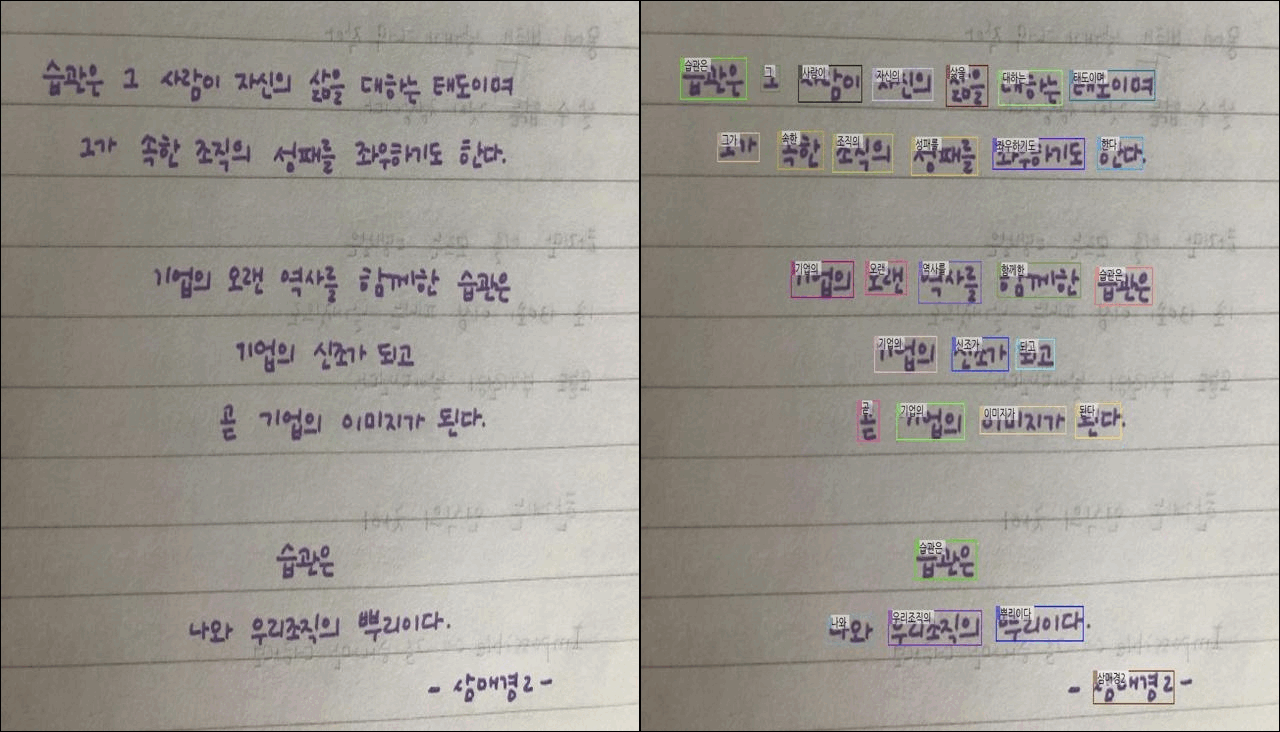 습관은 그 사람이 자신의 삶을 대하는 태도이며
그가 속한 조직의 성패를 좌우하기도 한다.
기업의 오랜 역사를 함께한 습관은
기업의 신조가 되고
곧 기업의 이미지가 된다.
습관은
나와 우리조직의 뿌리이다.
- 삼매경2 -
습관은 그 사람이 자신의 삶을 대하는 태도이며
그가 속한 조직의 성패를 좌우하기도 한다.
기업의 오랜 역사를 함께한 습관은
기업의 신조가 되고
곧 기업의 이미지가 된다.
습관은
나와 우리조직의 뿌리이다.
- 삼매경2 -